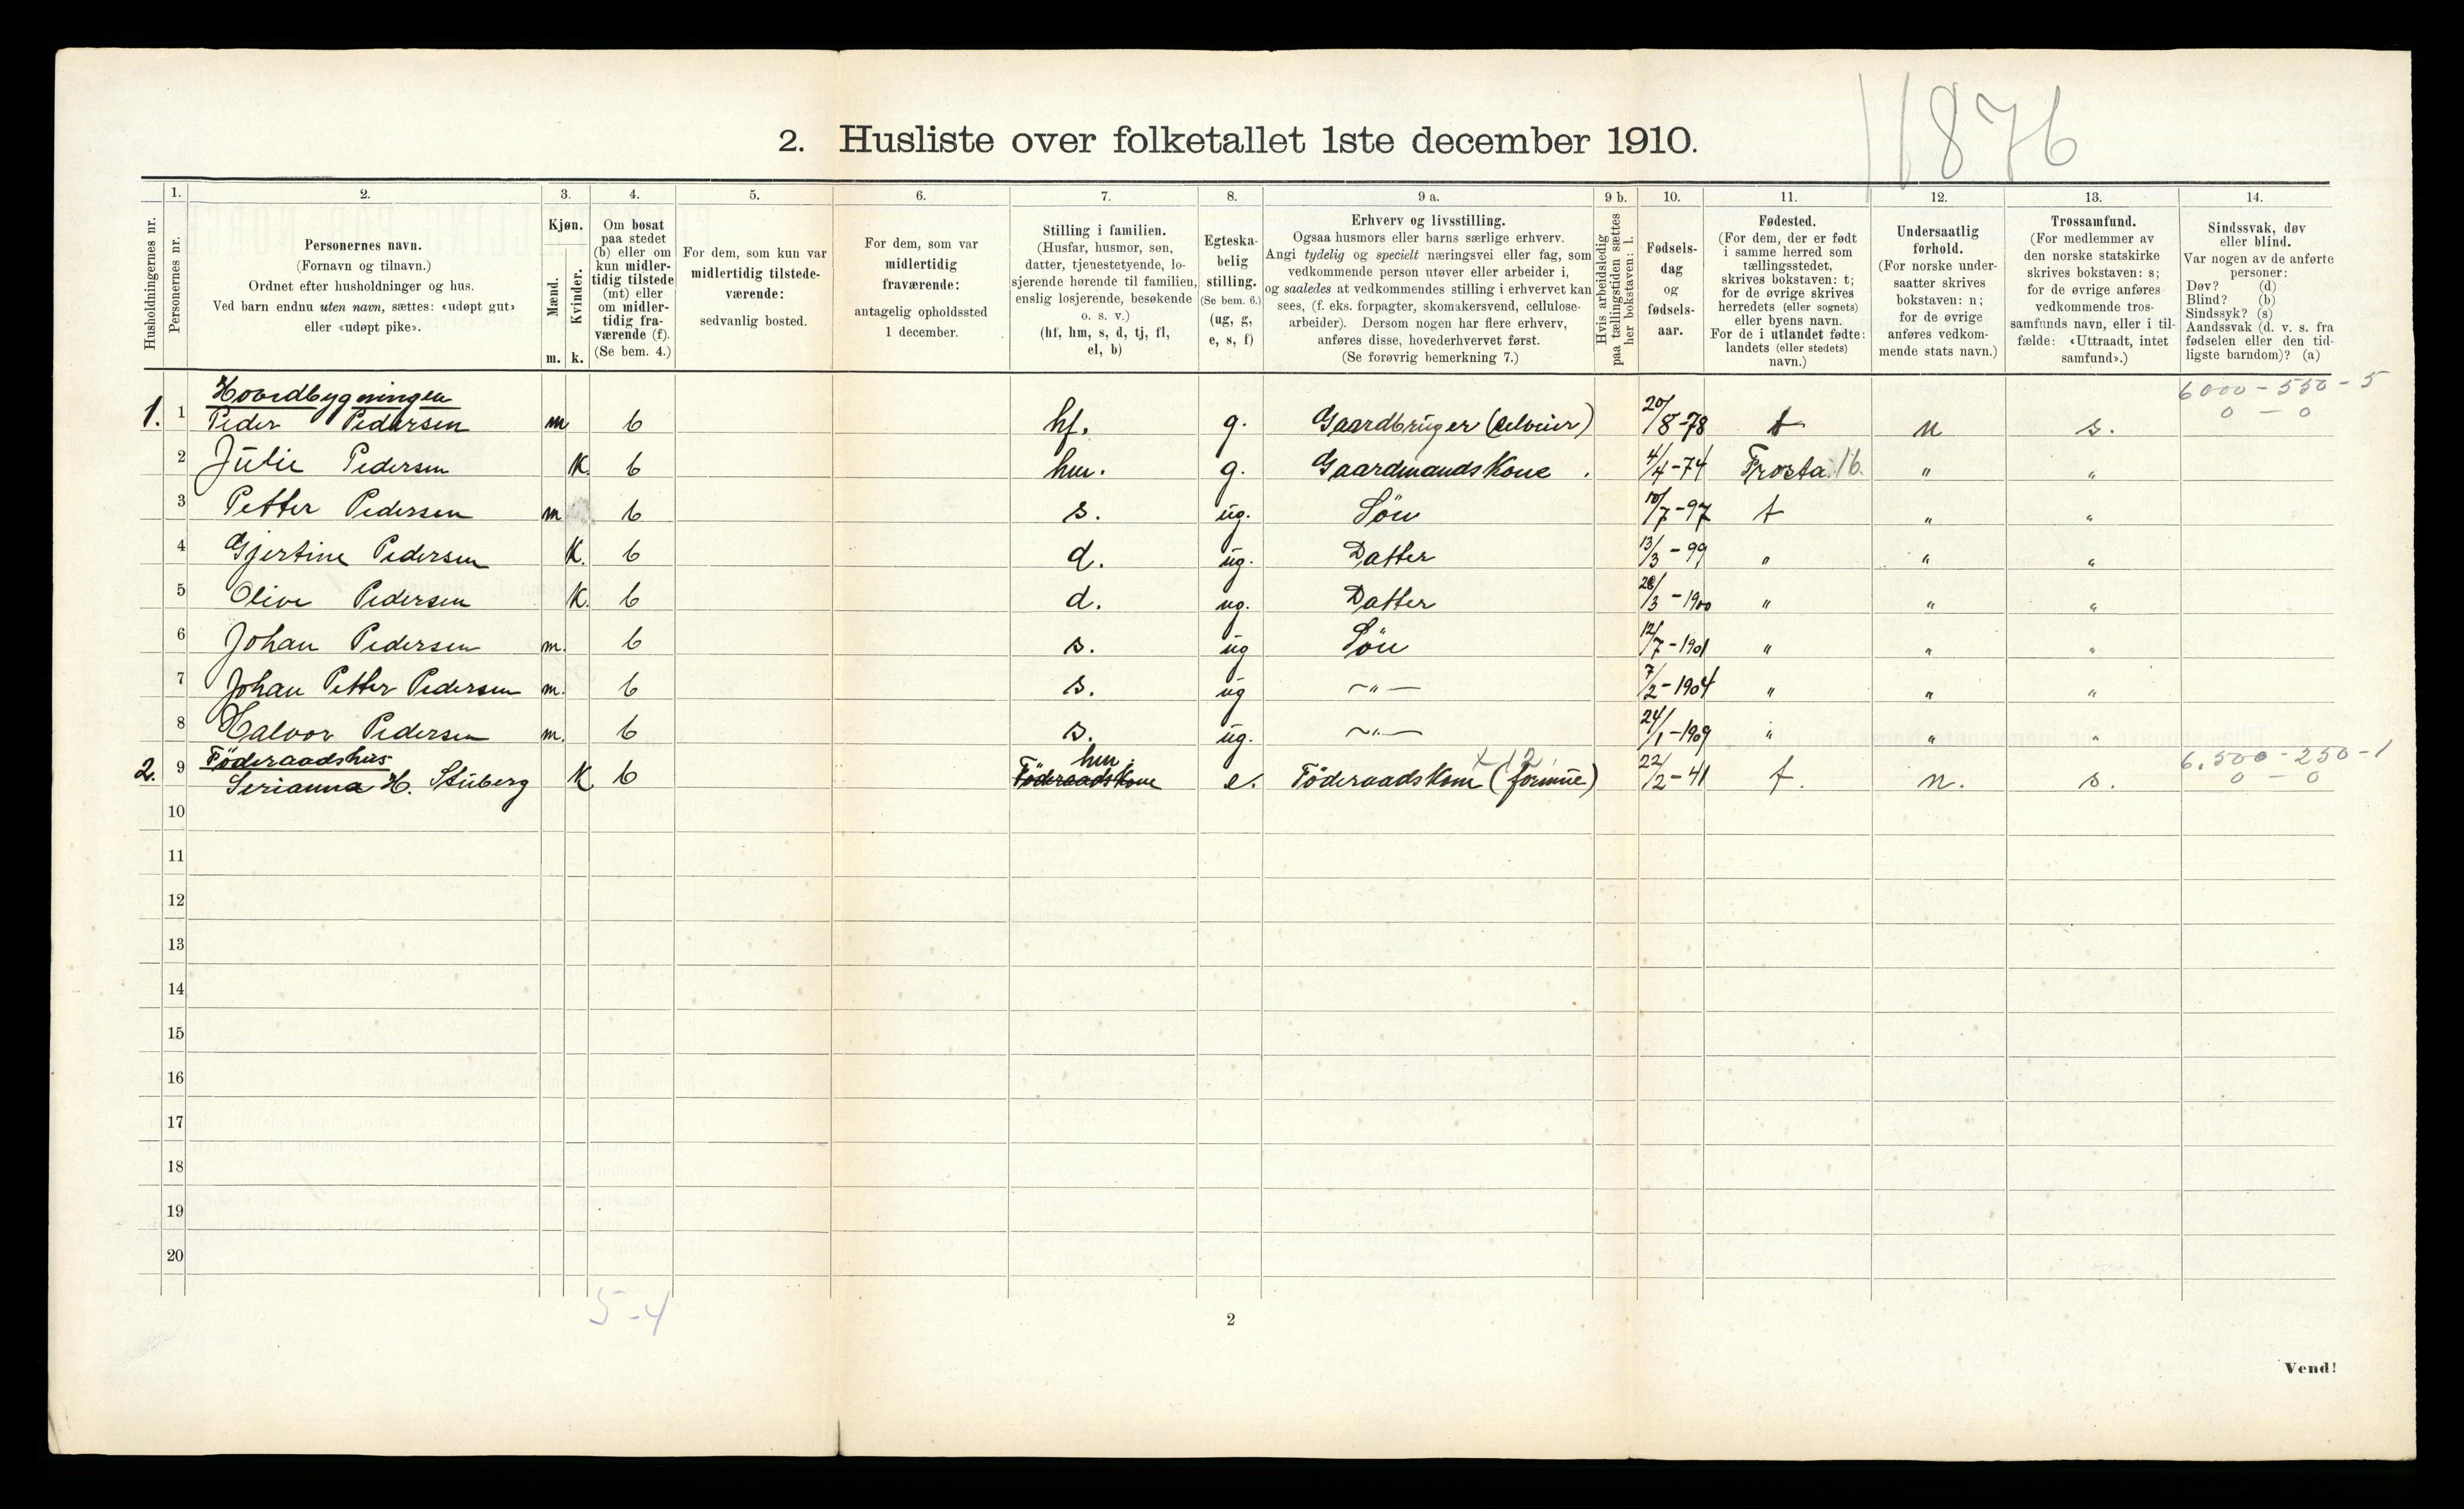 1876
2. Husliste over folketallet 1ste december 1910.
Husholdningernes nr.
1. Personernes nr.
2. Personernes navn.
(Fornavn og tilnavn.)
Ordnet efter husholdninger og hus.
Ved barn endnu uten navn, sættes: «udøpt gut»
eller «udøpt pike».
3. Kjøn.
Mænd. m.
Kvinder. k.
4. Om bosat
paa stedet
(b) eller om
kun midler-
tidig tilstede
(mt) eller
om midler-
tidig fra-
værende (f).
(Se bem. 4.)
5. For dem, som kun var
midlertidig tilstede-
værende:
sedvanlig bosted.
6. For dem, som var
midlertidig
fraværende:
antagelig opholdssted
1 december.
7. Stilling i familien.
(Husfar, husmor, søn,
datter, tjenestetyende, lo-
sjerende hørende til familien,
enslig losjerende, besøkende
o. s. v.)
(hf, hm, s, d, tj, fl,
el, b)
8. Egteska-
belig
stilling.
(Se bem. 6.)
(ug, g,
e, s, f)
9 a. Erhverv og livsstilling.
Ogsaa husmors eller barns særlige erhverv.
Angi tydelig og specielt næringsvei eller fag, som
vedkommende person utøver eller arbeider i,
og saaledes at vedkommendes stilling i erhvervet kan
sees, (f. eks. forpagter, skomakersvend, cellulose-
arbeider). Dersom nogen har flere erhverv,
anføres disse, hovederhvervet først.
(Se forøvrig bemerkning 7.)
9 b. Hvis arbeidsledig
paa tællingstiden sættes
her bokstaven: l.
10. Fødsels-
dag
og
fødsels-
aar.
11. Fødested.
(For dem, der er født
i samme herred som
tællingsstedet,
skrives bokstaven: t;
for de øvrige skrives
herredets (eller sognets)
eller byens navn.
For de i utlandet fødte:
landets (eller stedets)
navn.)
12. Undersaatlig
forhold.
(For norske under-
saatter skrives
bokstaven: n;
for de øvrige
anføres vedkom-
mende stats navn.)
13. Trossamfund.
(For medlemmer av
den norske statskirke
skrives bokstaven: s;
for de øvrige anføres
vedkommende tros-
samfunds navn, eller i til-
fælde: «Uttraadt, intet
samfund».)
14. Sindssvak, døv
eller blind.
Var nogen av de anførte
personer:
Døv? (d)
Blind? (b)
Sindssyk? (s)
Aandssvak (d. v. s. fra
fødselen eller den tid-
ligste barndom)? (a)
Hovedbygningen 6000 - 550 - 5
1. 1 Peder Pedersen m b hf. g. Gaardbruger (selveier) 20/8-78 t n s. 0 - 0
2 Julie Pedersen K. b hm. g. Gaardmands Kone. 4/4-74 Frosta 16 " "
3 Petter Pedersen m b s. ug. Sön 10/7-97 t " "
4 Gjertine Pedersen K. b d. ug. Datter 13/3-99 " " "
5 Olive Pedersen K. b d. ug. Datter 28/3-1900 " " "
6 Johan Pedersen m. b s. ug Sön 12/7-1901 " " "
7 Johan Petter Pedersen m. b s. ug -"- 7/2-1904 " " "
8 Halvor Pedersen m. b s. ug. -"- 24/1-1909 " " "
Föderaadshus hm. x 12. 6.500 - 250 - 1
2. 9 Serianna H. Stuberg K b Föderaadskone e. Föderaadskone (formue) 22/2-41 t. n. s. 0 - 0
10
11
12
13
14
15
16
17
18
19
20
5-4
2
Vend!